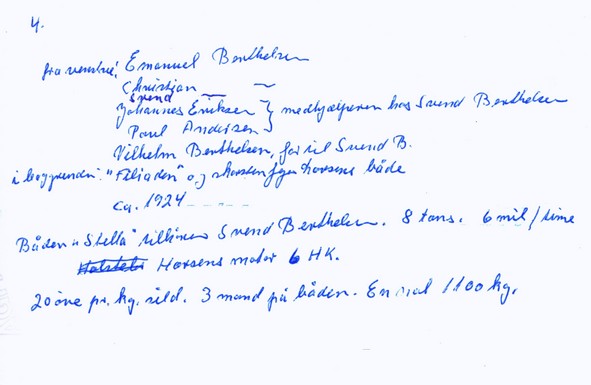 4.
fra venstre: Emanuel Berthelsen
Christian ~
Svend ~
Johannes Eriksen } medhjælpere hos Svend Berthelsen
Poul Andersen
Vilhelm Berthelsen, far til Svend B.
i baggrunden: og Horsens både
ca. 1924
Båden "Stella" tilhører Svend Berthelsen. 8 tons. 6 mil/time
Horsens motor 6 HK.
20 øre pr. kg. sild. 3 mand på båden. En mal 1100 kg.